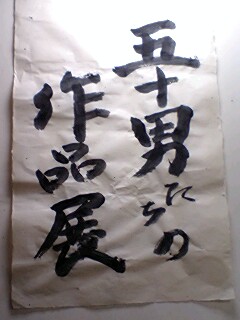 五十男たちの
作品展